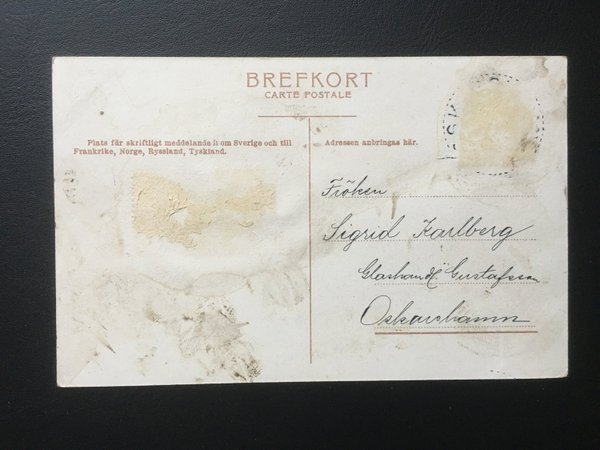 BREFKORT
CARTE POSTALE
Plats för skriftligt meddelande inom Sverige och till
Frankrike, Norge, Ryssland, Tyskland.
Adressen anbringas här.
Fröken
Sigrid Karlberg
Glashandl. Gustafsson
Oskarshamn